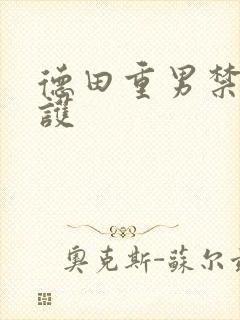 德田重男禁
護
奥克斯-蘇尔